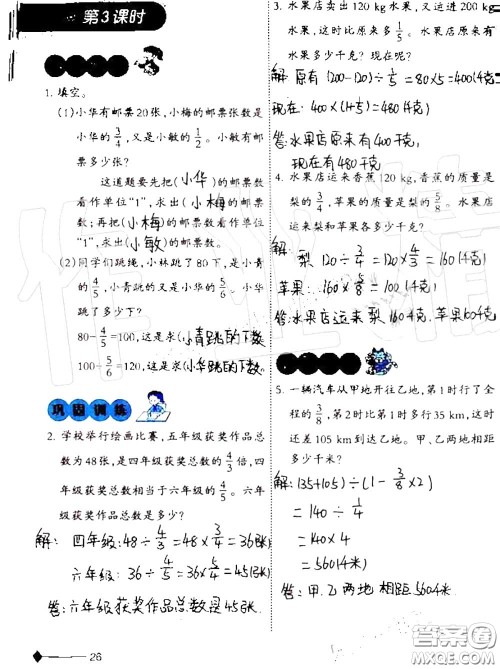 第3课时
1. 填空。
(1)小华有邮票20张,小梅的邮票张数是
小华的3/4,又是小敏的1/2。小敏有邮
票多少张?
这道题要先把(小华)的邮票数
看作单位“1”,求出(小梅)的邮票
数;再再把(小梅)的邮票数看作单位
“1”,求出(小敏)的邮票数。
(2)同学们跳绳,小林跳了80下,是小青
的4/5,小青跳的又是小华的5/6。小华
跳了多少下?
80÷4/5=100,这是求(小青跳的下数)
100÷5/6=120,这是求(小华跳的下数)
巩固训练
2. 学校举行绘画比赛,五年级获奖作品总
数为48张,是四年级获奖总数的4/3倍,四
年级获奖总数相当于六年级的4/5。六年
级获奖作品总数是多少?
解: 四年级:48÷4/3=48×3/4=36(张)
六年级:36÷4/5=36×5/4=45(张)
答:六年级获奖作品总数是45张.
26
3. 水果店卖出120 kg水果,又运进200 kg
水果,这时比原来多1/5。水果店原来有
水果多少千克?现在呢?
解:原有(200-120)÷1/5=80×5=400(千克)
现在:400×(1+1/5)=480(千克)
答:水果店原来有400千克
现在有480千克
4. 水果店运来香蕉120 kg,香蕉的质量是
梨的3/4,苹果的质量是梨的5/8。水果店运
来梨和苹果各多少千克?
解: 梨 120÷3/4=120×4/3=160(千克)
苹果:160×5/8=100(千克)
答:水果店运来梨160千克,苹果100千克.
5. 一辆汽车从甲地开往乙地,第1时行了全
程的3/8,第2时比第1时多行35 km,这时
还差105 km到达乙地。甲、乙两地相距
多少千米?
解:(35+105)÷(1-3/8×2)
=140÷1/4
=140×4
=560(千米)
答:甲.乙两地相距560千米.